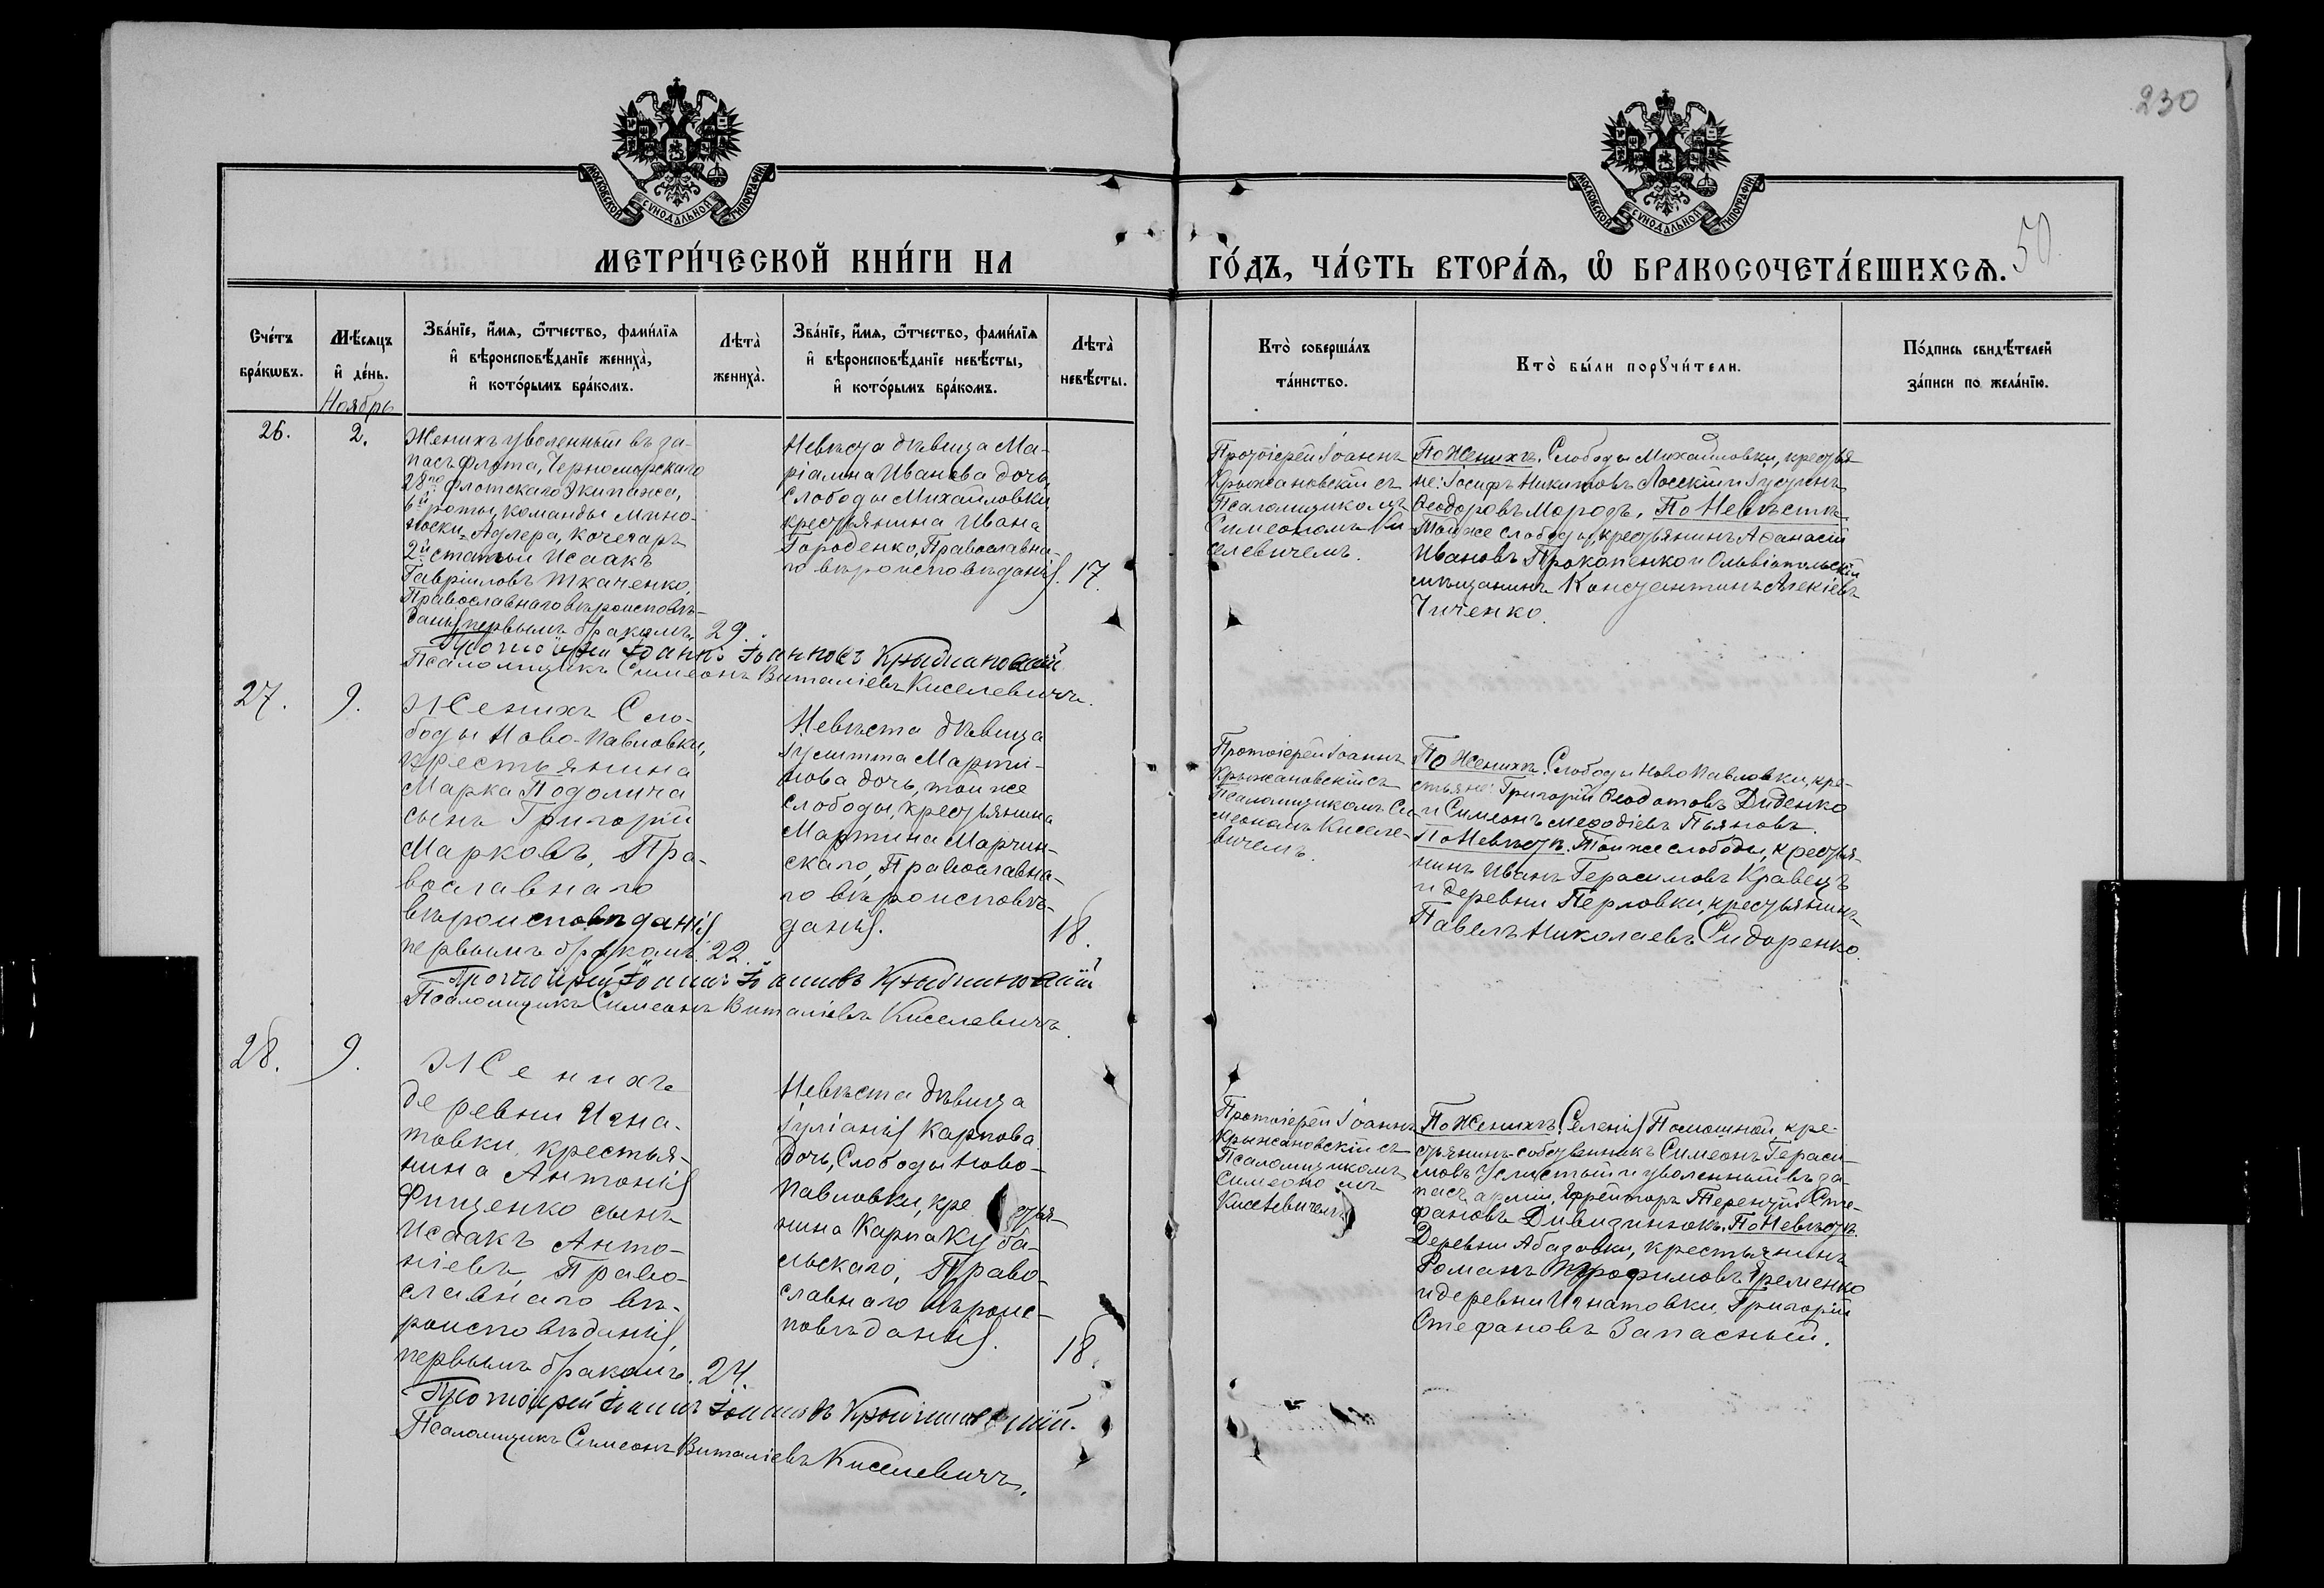 230
МОСКОВСКОЙ СѴНОДАЛЬНОЙ ТИПОГРАФІИ
МОСКОВСКОЙ СѴНОДАЛЬНОЙ ТИПОГРАФІИ
МЕТРИ́ЧЕСКОЙ КНИ́ГИ НА
ГО́ДЪ, ЧА́СТЬ ВТОРА́Ѧ, Ѽ БРАКОСОЧЕТА́ВШИХСѦ.
50.
Сче́тъ
бра́кѡвъ.
Мѣ́сяцъ
и҆ де́нь.
Ноябрь
Зва́нїе, и҆́мѧ, ѻ҆́тчество, фами́лїѧ
и҆ вѣроисповѣ́данїе жениха̀,
и҆ кото́рымъ бра́комъ.
Лѣта̀
жениха̀.
Зва́нїе, и҆́мѧ, ѻ҆́тчество, фами́лїѧ
и҆ вѣроисповѣ́данїе невѣ́сты,
и҆ кото́рымъ бра́комъ.
Лѣта̀
невѣ́сты.
Кто̀ соверша́лъ
та́инство.
Кто̀ бы́ли порꙋчи́тели.
По́дпись свидѣ́телей
за́писи по жела́нїю.
26.
2.
Женихъ уволенный въ за-
пасъ флота, Черноморскаго
28го флотскаго Экипажа,
6й роты, команды Мино-
носки Адлера, кочегаръ
2й статьи Исаакъ
Гавріиловъ Ткаченко,
Православнаго вѣроисповѣ-
данія, первымъ бракомъ.
29.
Невѣста дѣвица Ма-
ріамна Иванова дочь,
Слободы Михайловки
крестьянина Ивана
Городенко, Православна-
го вѣроисповѣданія.
17.
Протоіерей Іоаннъ
Крыжановскій съ
Псаломщикомъ
Симеономъ Ки-
селевичемъ.
По Женихѣ: Слободы Михайловки, крестья-
не: Іосифъ Никитовъ Лосскій и Іустинъ
Ѳеодоровъ Морозъ. По Невѣстѣ:
Той же слободы, крестьянинъ Аѳанасій
Ивановъ Прокопенко и Ольвіопольскій
мѣщанинъ Константинъ Алексіевъ
Чиченко.
Протоіерей Іоаннъ Іоанновъ Крыжановскій
Псаломщикъ Симеонъ Виталіевъ Киселевичъ.
27.
9.
Женихъ Сло-
боды Ново-Павловки,
крестьянина
Марка Подолича
сынъ Григорій
Марковъ, Пра-
вославнаго
вѣроисповѣданія
первымъ бракомъ.
22.
Невѣста дѣвица
Іулитта Марти-
нова дочь, той же
слободы, крестьянина
Мартина Марчин-
скаго, Православна-
го вѣроисповѣ-
данія.
18.
Протоіерей Іоаннъ
Крыжановскій съ
Псаломщикомъ Си-
меономъ Киселе-
вичемъ.
По Женихѣ: Слободы Ново Павловки, кре-
стьяне: Григорій Ѳеодотовъ Диденко
и Симеонъ Меѳодіевъ Пьяновъ.
По Невѣстѣ: Той же слободы, крестья-
нинъ Иванъ Герасимовъ Кравецъ
и деревни Перловки, крестьянинъ
Павелъ Николаевъ Сидоренко.
Протоіерей Іоаннъ Іоанновъ Крыжановскій
Псаломщикъ Симеонъ Виталіевъ Киселевичъ.
28.
9.
Женихъ
деревни Игна-
товки, крестья-
нина Антонія
Фищенко сынъ
Исаакъ Анто-
ніевъ, Право-
славнаго вѣ-
роисповѣданія,
первымъ бракомъ.
24.
Невѣста дѣвица
Іуліанія Карпова
дочь, Слободы Ново-
Павловки, кре стья-
нина Карпа Куба-
льскаго, Право-
славнаго вѣроис-
повѣданія.
18.
Протоіерей Іоаннъ
Крыжановскій съ
Псаломщикомъ
Симеономъ
Киселевичемъ
По Женихѣ: Селенія Помошной, кре-
стьянинъ-собственникъ Симеонъ Гераси-
мовъ Усмистый и уволенный въ за-
пасъ арміи, Ефрейторъ Терентій Сте-
фановъ Дивизинюкъ. По Невѣстѣ:
Деревни Абазовки, крестьянинъ
Романъ Трофимовъ Еременко
и деревни Игнатовки, Григорій
Стефановъ Запасный.
Протоіерей Іоаннъ Іоанновъ Крыжановскій.
Псаломщикъ Симеонъ Виталіевъ Киселевичъ.